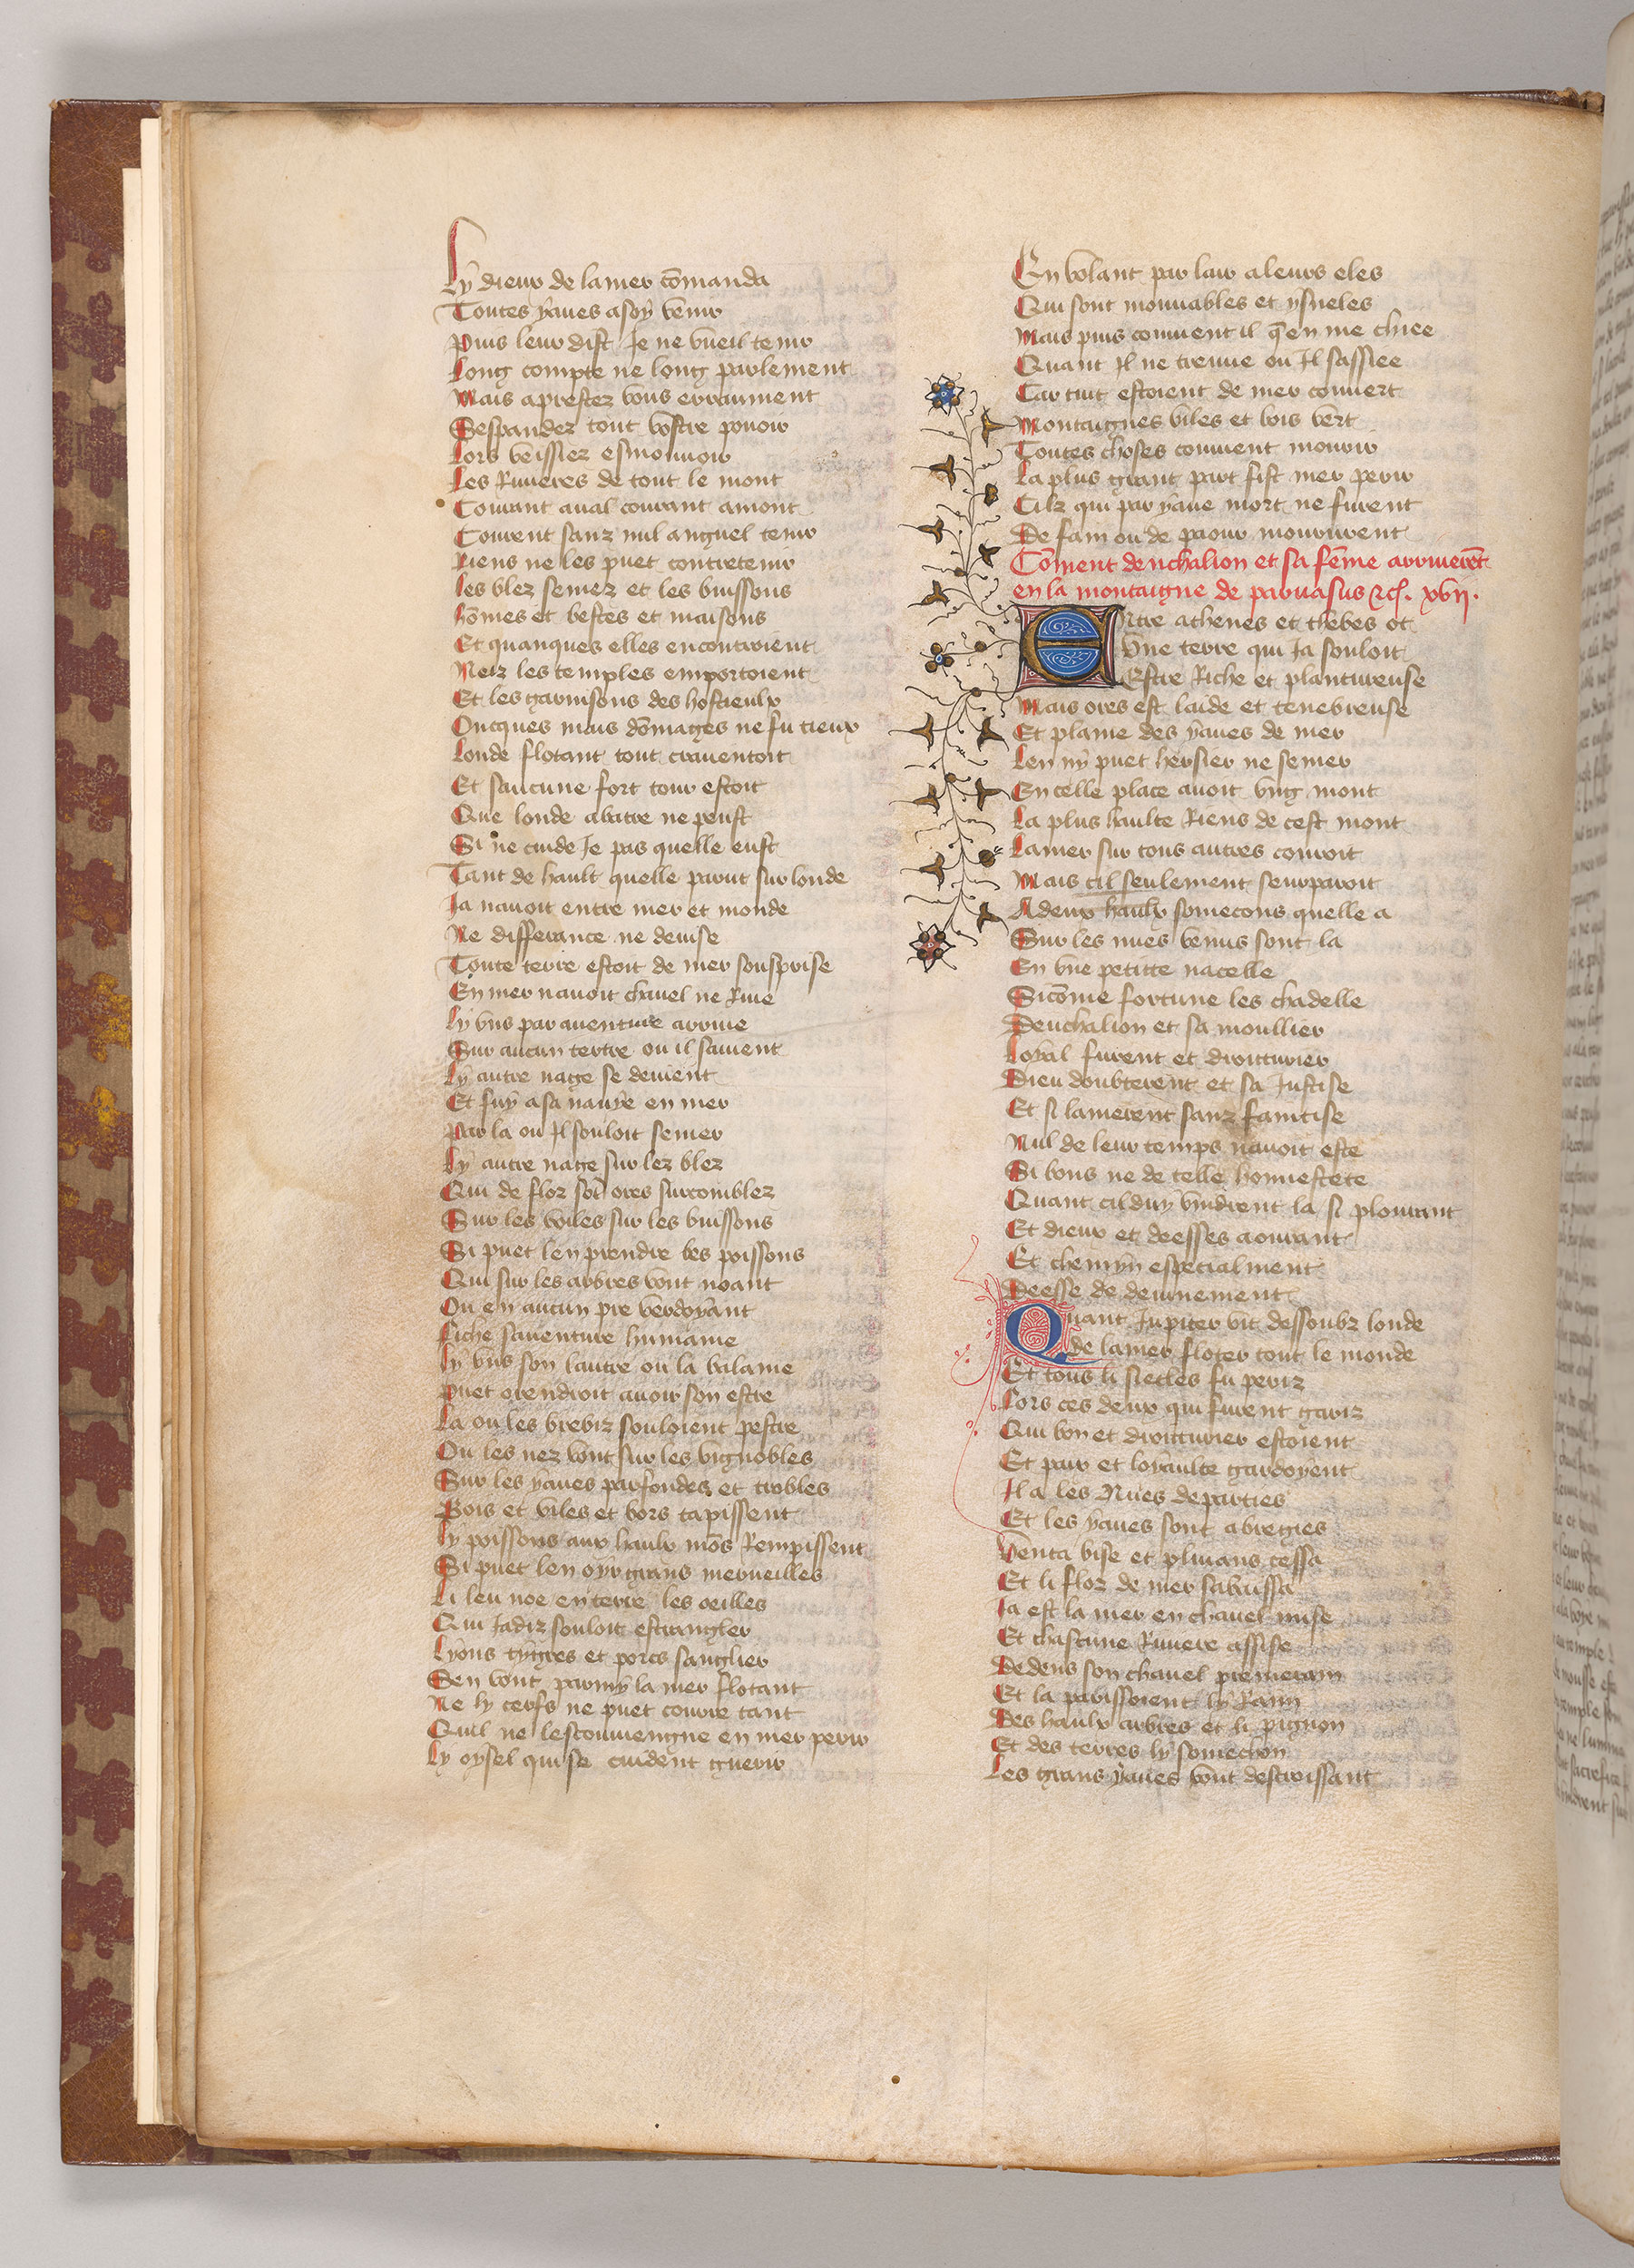 Ly dieux de la mer comanda
Toutes yaues a soy venir
Puis leur dist Je ne vueil tenir
Long compte ne long parlement
Mais aprestez vous erraument
Sespandez tout vostre povoir
Lors veissiez esmouvoir
Les Rivieres de tout le mont
Courant aval courant amont
Courent sanz nul anguel tenir
Riens ne les puet contretenir
Les blez semez et les buissons
homes et bestes et maisons
Et quanques elles encontroient
Neiz les temples emportoient
Et les garnisons des hostieulx
Oncques mais domages ne fu tieux
Londe flotant tout craventoit
Et saucune fort tour estoit
Que londe abatre ne peust
Si ne cuide Je pas quelle eust
Tant de hault quelle parut sur londe
Ja navoit entre mer et monde
Ne differance ne devise
Toute terre estoit de mer sousprise
En mer navoit chavel ne Rive
Ly uns par aventure arrive
Sur aucun tertre ou il savient
Ly autre nage se devient
Et fuy a sa navye en mer
Par la ou Il souloit semer
Ly autre nage sur lez blez
Qui de floz sont ores surcomblez
Sur les voiles sur les buissons
Si puet len prendre les poissons
Qui sur les arbres vont noant
Ou en aucun pre verdoyant
fiche saventure humaine
Ly uns son lautre ou la balaine
Puet orendroit avoir son estre
La ou les brebiz souloient pestre
Ou les nez vont sur les vignobles
Sur les yaues parfondes et trobles
Bois et viles et bors tapissent
Ly poissons aux haulx mons Rempissent
Si puet len oyr grans merveilles
Li leu noe entre les oeilles
Qui Jadiz souloit estrangler
Lyons tygres et porcs sanglier
Sen vont parmy la mer flotant
Ne ly cerfs ne puet courre tant
Quil ne lesconviengne en mer perir
Ly oysel qui se cuident guerir
En volant par lair a leurs eles
Qui sont mouvables et ysneles
Mais puis convient il qen me chiee
Quant Il ne treuve ou Il sassiee
Car tuit estoient de mer couvert
Montaignes viles et bois vert
Toutes choses convient mourir
La plus grant part fist mer perir
Cilz qui par yaue mort ne furent
De fain ou de paour moururent
Coment deuchalion et sa feme arriverent
en la montaigne de parnasus &c. xvii.
Entre athenes et thebes ot
Une terre qui Ja souloit
Estre Riche et plantureuse
Mais ores est laide et tenebreuse
Et plaine des yaues de mer
Len ny puet hersier ne semer
En celle place avoit ung mont
La plus haulte Riens de cest mont
La mer sur tous autres couroit
Mais cil seulement seurparoit
A deux haulx somecons quelle a
Sur les nues venus sont la
En une petitte nacelle
Sicome fortune les chadelle
Deuchalion et sa moullier
Loyal furent et droitturier
Dieu doubterent et sa Justise
Et si lamerent sanz faintise
Nul de leur temps navoit este
Si bons ne de telle honnestete
Quant cil duy vindrent la si plourant
Et dieux et deesses aourant
Et chemyn especialment
Deesse de devinement
Quant Jupiter vit dessoubz londe
de la mer floter tout le monde
Et tous li siecles fu periz
Lors ces deux qui furent gariz
Qui bon et droitturier estoient
Et pair et loyaulte gardoyent
Il a les Nues departies
Et les yaues sont abregies
Venta bise et pluvans cessa
Et li floz de mer sabaissa
Ja est la mer en chavel mise
Et chascune Riviere assise
Dedens son chavel premerain
Et la parissoient ly Raim
Des haulx arbres et li pignon
Et des terres ly somechon
Les grans yaues vont descroissant